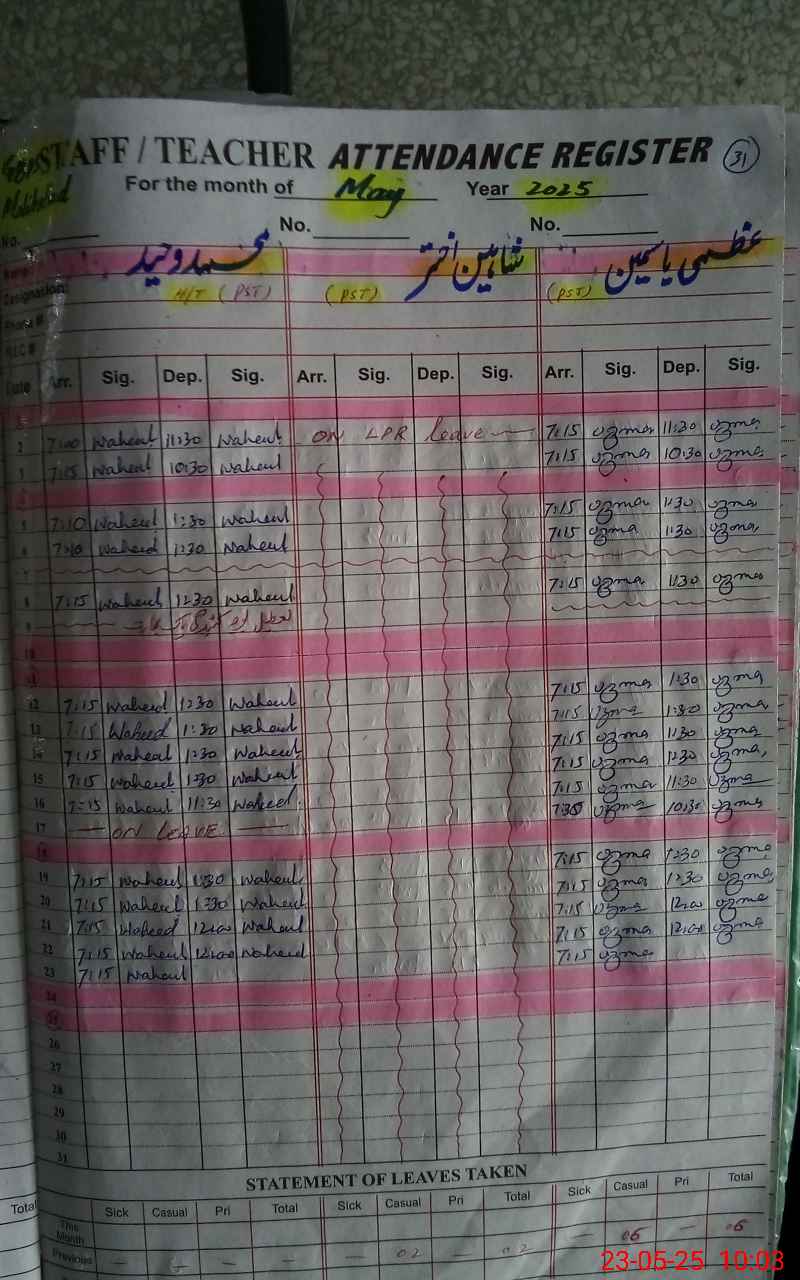 STAFF / TEACHER ATTENDANCE REGISTER 31
For the month of May Year 2025
No. No. No.
محمد وحید شاہین اختر عظمیٰ یاسمین
Designation: H/T (PST) (PST) (PST)
Phone #
Date Arr. Sig. Dep. Sig. Arr. Sig. Dep. Sig. Arr. Sig. Dep. Sig.
2 7:00 Waheed 11:30 Waheed ON LPR leave 7:15 uzma 11:30 uzma
3 7:15 Waheed 10:30 Waheed 7:15 uzma 10:30 uzma
5 7:10 Waheed 1:30 Waheed 7:15 uzma 1:30 uzma
6 7:10 Waheed 1:30 Waheed 7:15 uzma 1:30 uzma
7
8 7:15 Waheed 1:30 Waheed 7:15 uzma 1:30 uzma
9
10
11
12 7:15 Waheed 1:30 Waheed 7:15 uzma 1:30 uzma
13 7:15 Waheed 1:30 Waheed 7:15 uzma 1:30 uzma
14 7:15 Waheed 1:30 Waheed 7:15 uzma 1:30 uzma
15 7:15 Waheed 1:30 Waheed 7:15 uzma 1:30 uzma
16 7:15 Waheed 11:30 Waheed 7:15 uzma 11:30 uzma
17 ON LEAVE 7:35 uzma 10:30 uzma
18
19 7:15 Waheed 1:30 Waheed 7:15 uzma 1:30 uzma
20 7:15 Waheed 1:30 Waheed 7:15 uzma 1:30 uzma
21 7:15 Waheed 12:00 Waheed 7:15 uzma 12:00 uzma
22 7:15 Waheed 12:00 Waheed 7:15 uzma 12:00 uzma
23 7:15 Waheed 7:15 uzma
24
25
26
27
28
29
30
31
STATEMENT OF LEAVES TAKEN
Total Sick Casual Pri Total Sick Casual Pri Total Sick Casual Pri Total
This Month 06 — 06
Previous — — — — — 02 — 02
23-05-25 10:03